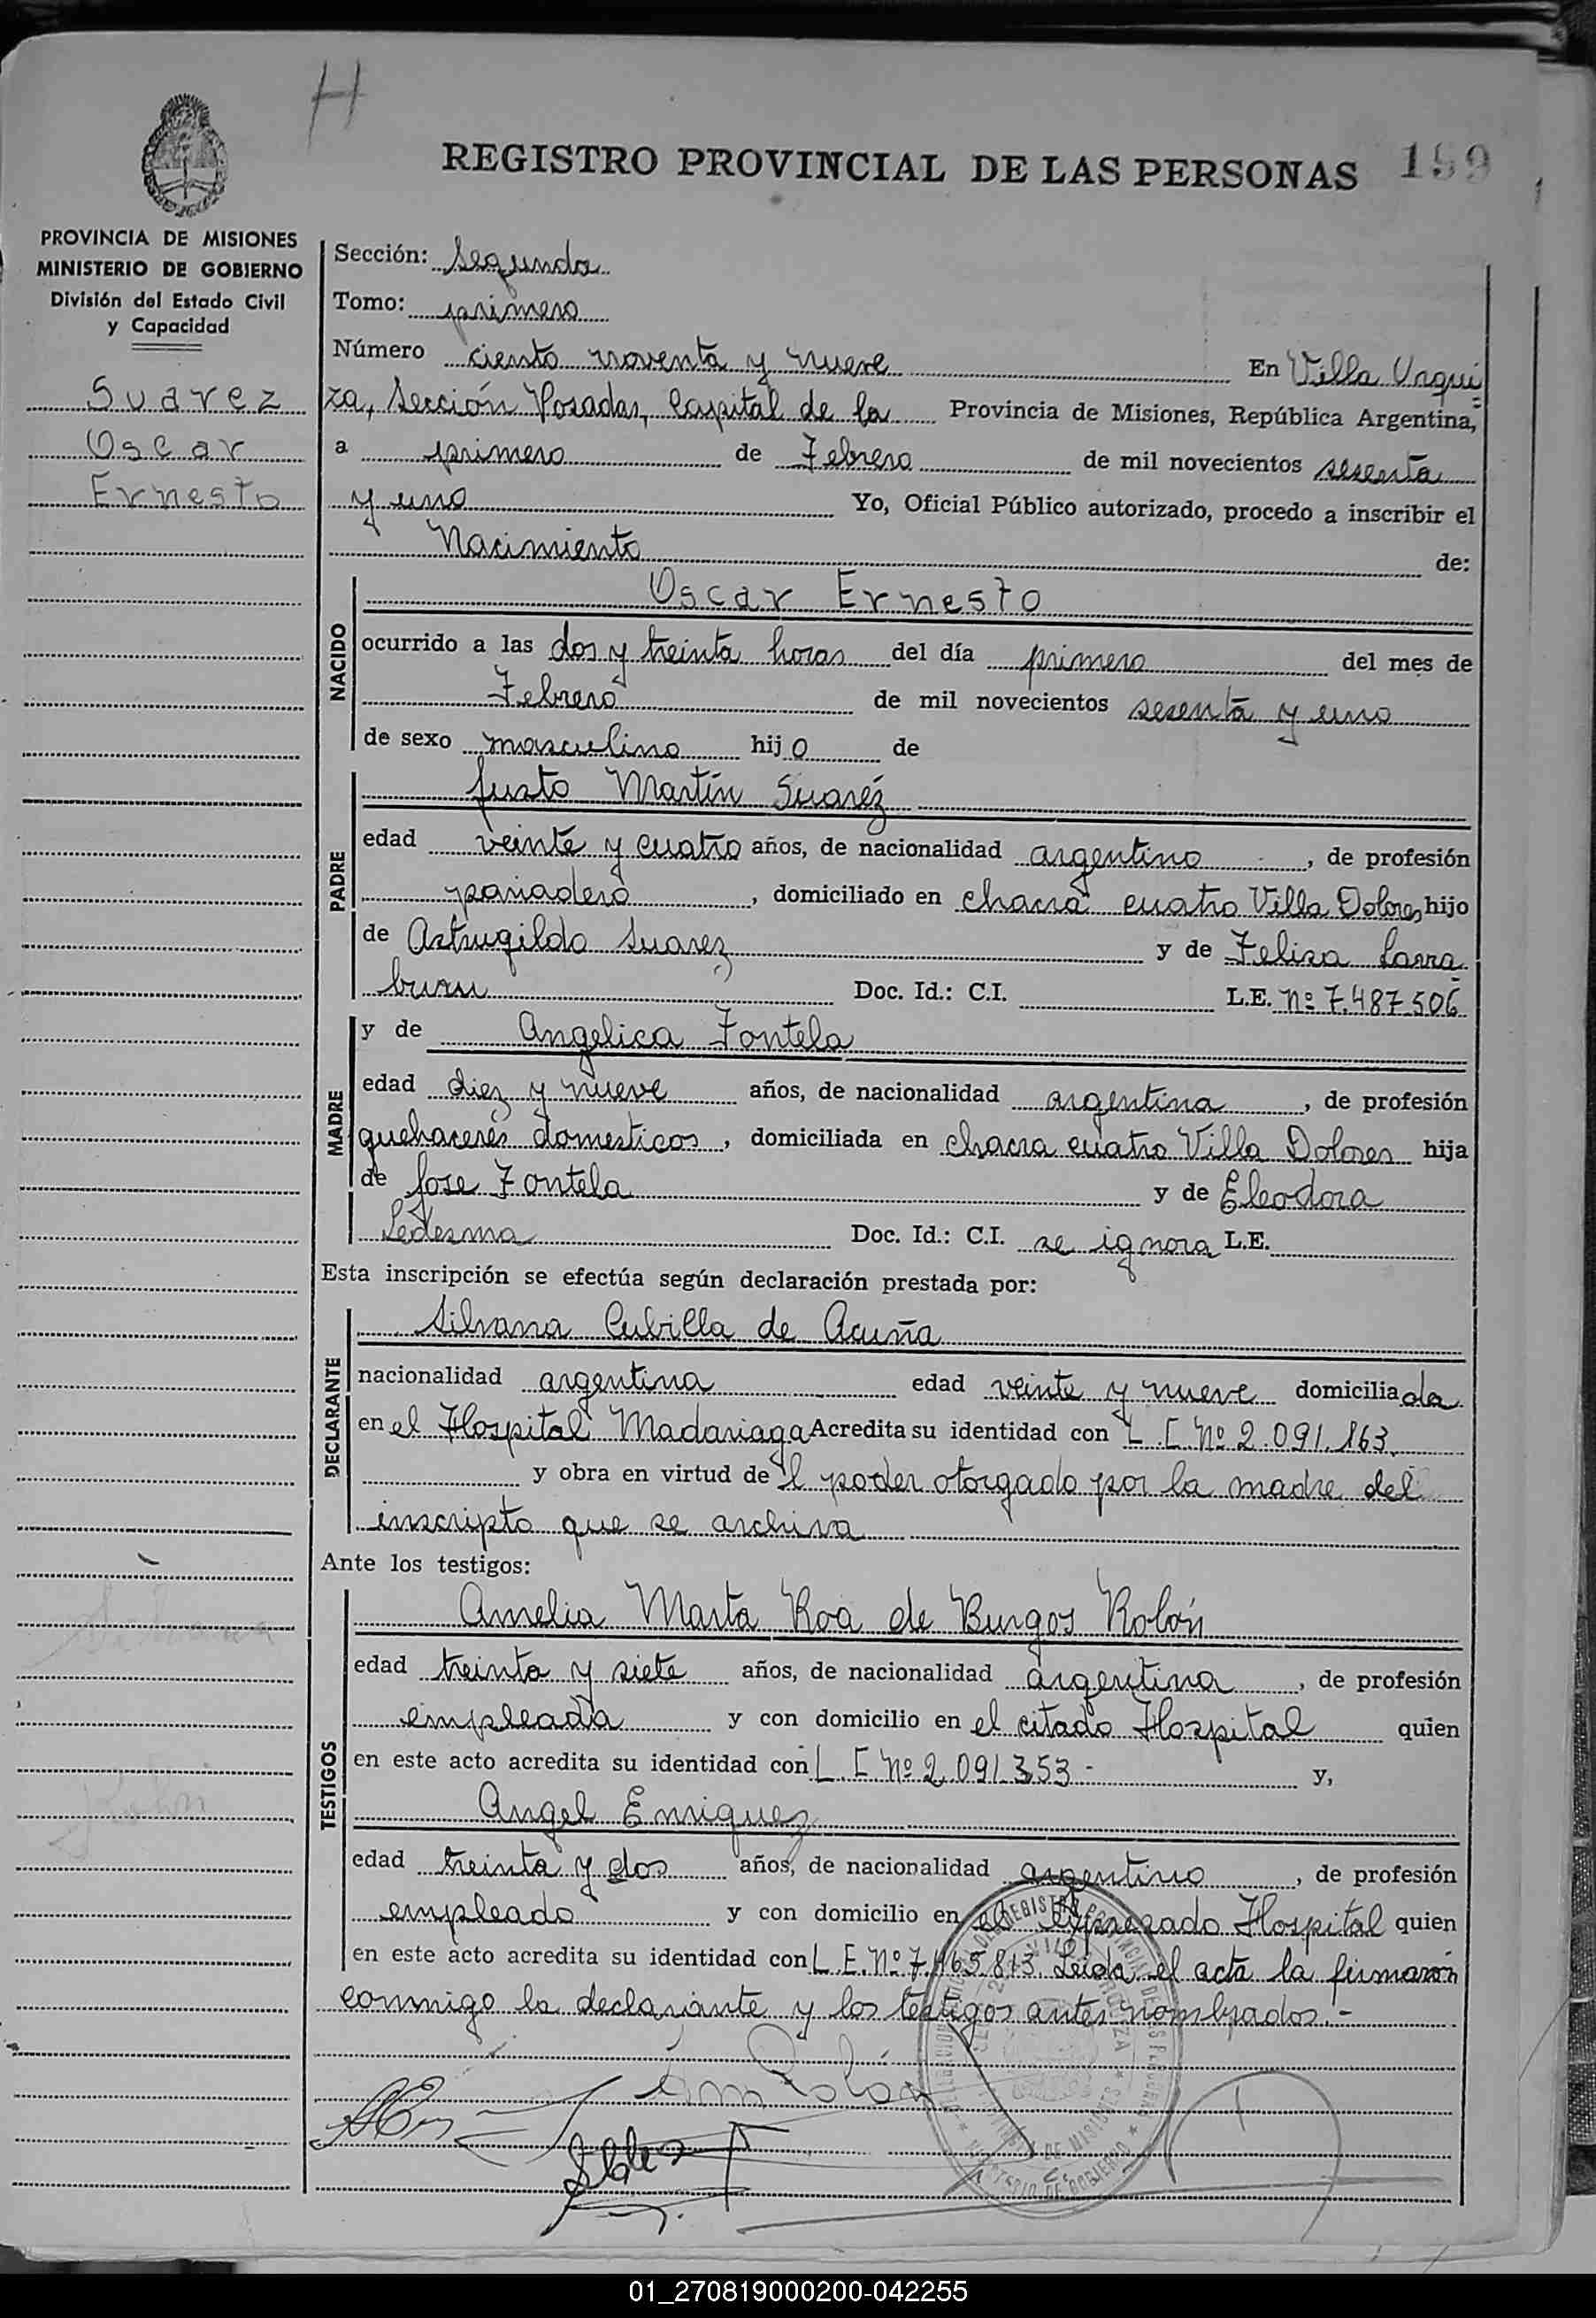 H
REGISTRO PROVINCIAL DE LAS PERSONAS 199
PROVINCIA DE MISIONES
MINISTERIO DE GOBIERNO
División del Estado Civil
y Capacidad
Suarez
Oscar
Ernesto
Sección: Segunda
Tomo: primero
Número ciento noventa y nueve En Villa Urqui
za, Sección Posadas, Capital de la Provincia de Misiones, República Argentina,
a primero de Febrero de mil novecientos sesenta
y uno Yo, Oficial Público autorizado, procedo a inscribir el
Nacimiento de:
NACIDO
Oscar Ernesto
ocurrido a las dos y treinta horas del día primero del mes de
Febrero de mil novecientos sesenta y uno
de sexo masculino hijo de
PADRE
Justo Martín Suaréz
edad veinte y cuatro años, de nacionalidad argentino, de profesión
panadero, domiciliado en chacra cuatro Villa Dolores, hijo
de Astrugildo Suarez y de Feliza Larra
buru Doc. Id.: C.I. L.E. Nº 7.487.506
MADRE
y de Angelica Fontela
edad diez y nueve años, de nacionalidad argentina, de profesión
quehacerés domesticos, domiciliada en chacra cuatro Villa Dolores hija
de Jose Fontela y de Eleodora
Ledesma Doc. Id.: C.I. se ignora L.E.
Esta inscripción se efectúa según declaración prestada por:
DECLARANTE
Silvana Cubilla de Acuña
nacionalidad argentina edad veinte y nueve domiciliada
en el Hospital Madariaga Acredita su identidad con L.C. Nº 2.091.163.
y obra en virtud del poder otorgado por la madre del
inscripto que se archiva
Ante los testigos:
TESTIGOS
Amelia Marta Roa de Burgos Rolón
edad treinta y siete años, de nacionalidad argentina, de profesión
empleada y con domicilio en el citado Hospital quien
en este acto acredita su identidad con L.C. Nº 2.091.353 - y,
Angel Enriquez
edad treinta y dos años, de nacionalidad argentino, de profesión
empleado y con domicilio en el expresado Hospital quien
en este acto acredita su identidad con L.E. Nº 7.465.813 Leida el acta la firmarón
conmigo la declarante y los testigos antes nombrados.-
01_270819000200-042255